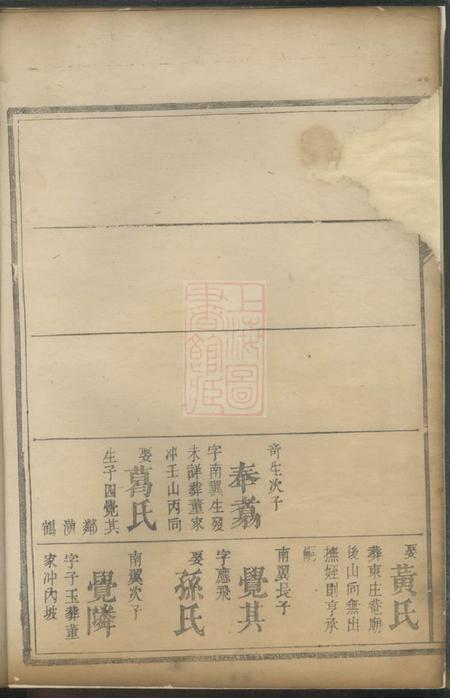 奇生次子
奉翥
字南翼生歿
未詳葬董家
冲壬山丙向
娶
葛氏
生子四覺其
鄰
鶴
娶
黃氏
葬東庄菴廟
後山向無出
撫姪則亨承
嗣
南翼長子
覺其
字應飛
娶
孫氏
南翼次子
覺隣
字子玉葬董
家冲內坡
上海圖
書館藏